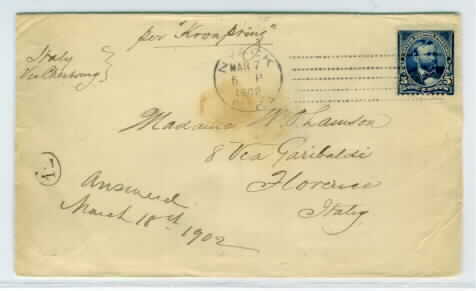 per "Kronprinz"
Italy
Via Cherbourg
N.Y.
MAR 7
6 P
1902
5 5
Madame W. P. Lamson
8 Via Garibaldi
Florence
Italy
Answered
March 18th 1902